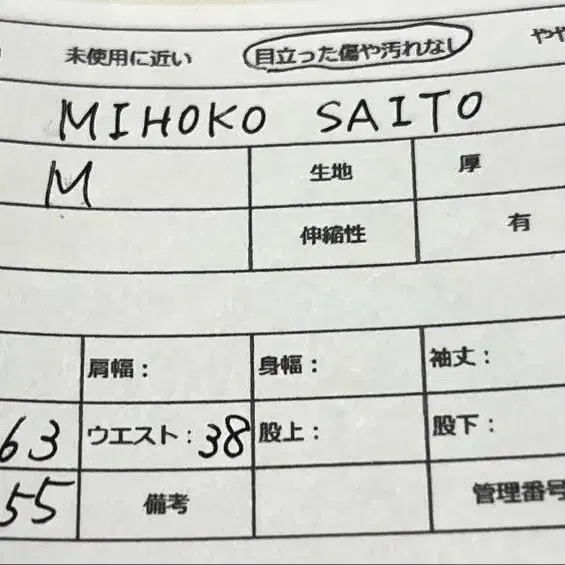 未使用に近い 目立った傷や汚れなし やや
MIHOKO SAITO
M 生地 厚
伸縮性 有
肩幅: 身幅: 袖丈:
63 ウエスト: 38 股上: 股下:
55 備考 管理番号